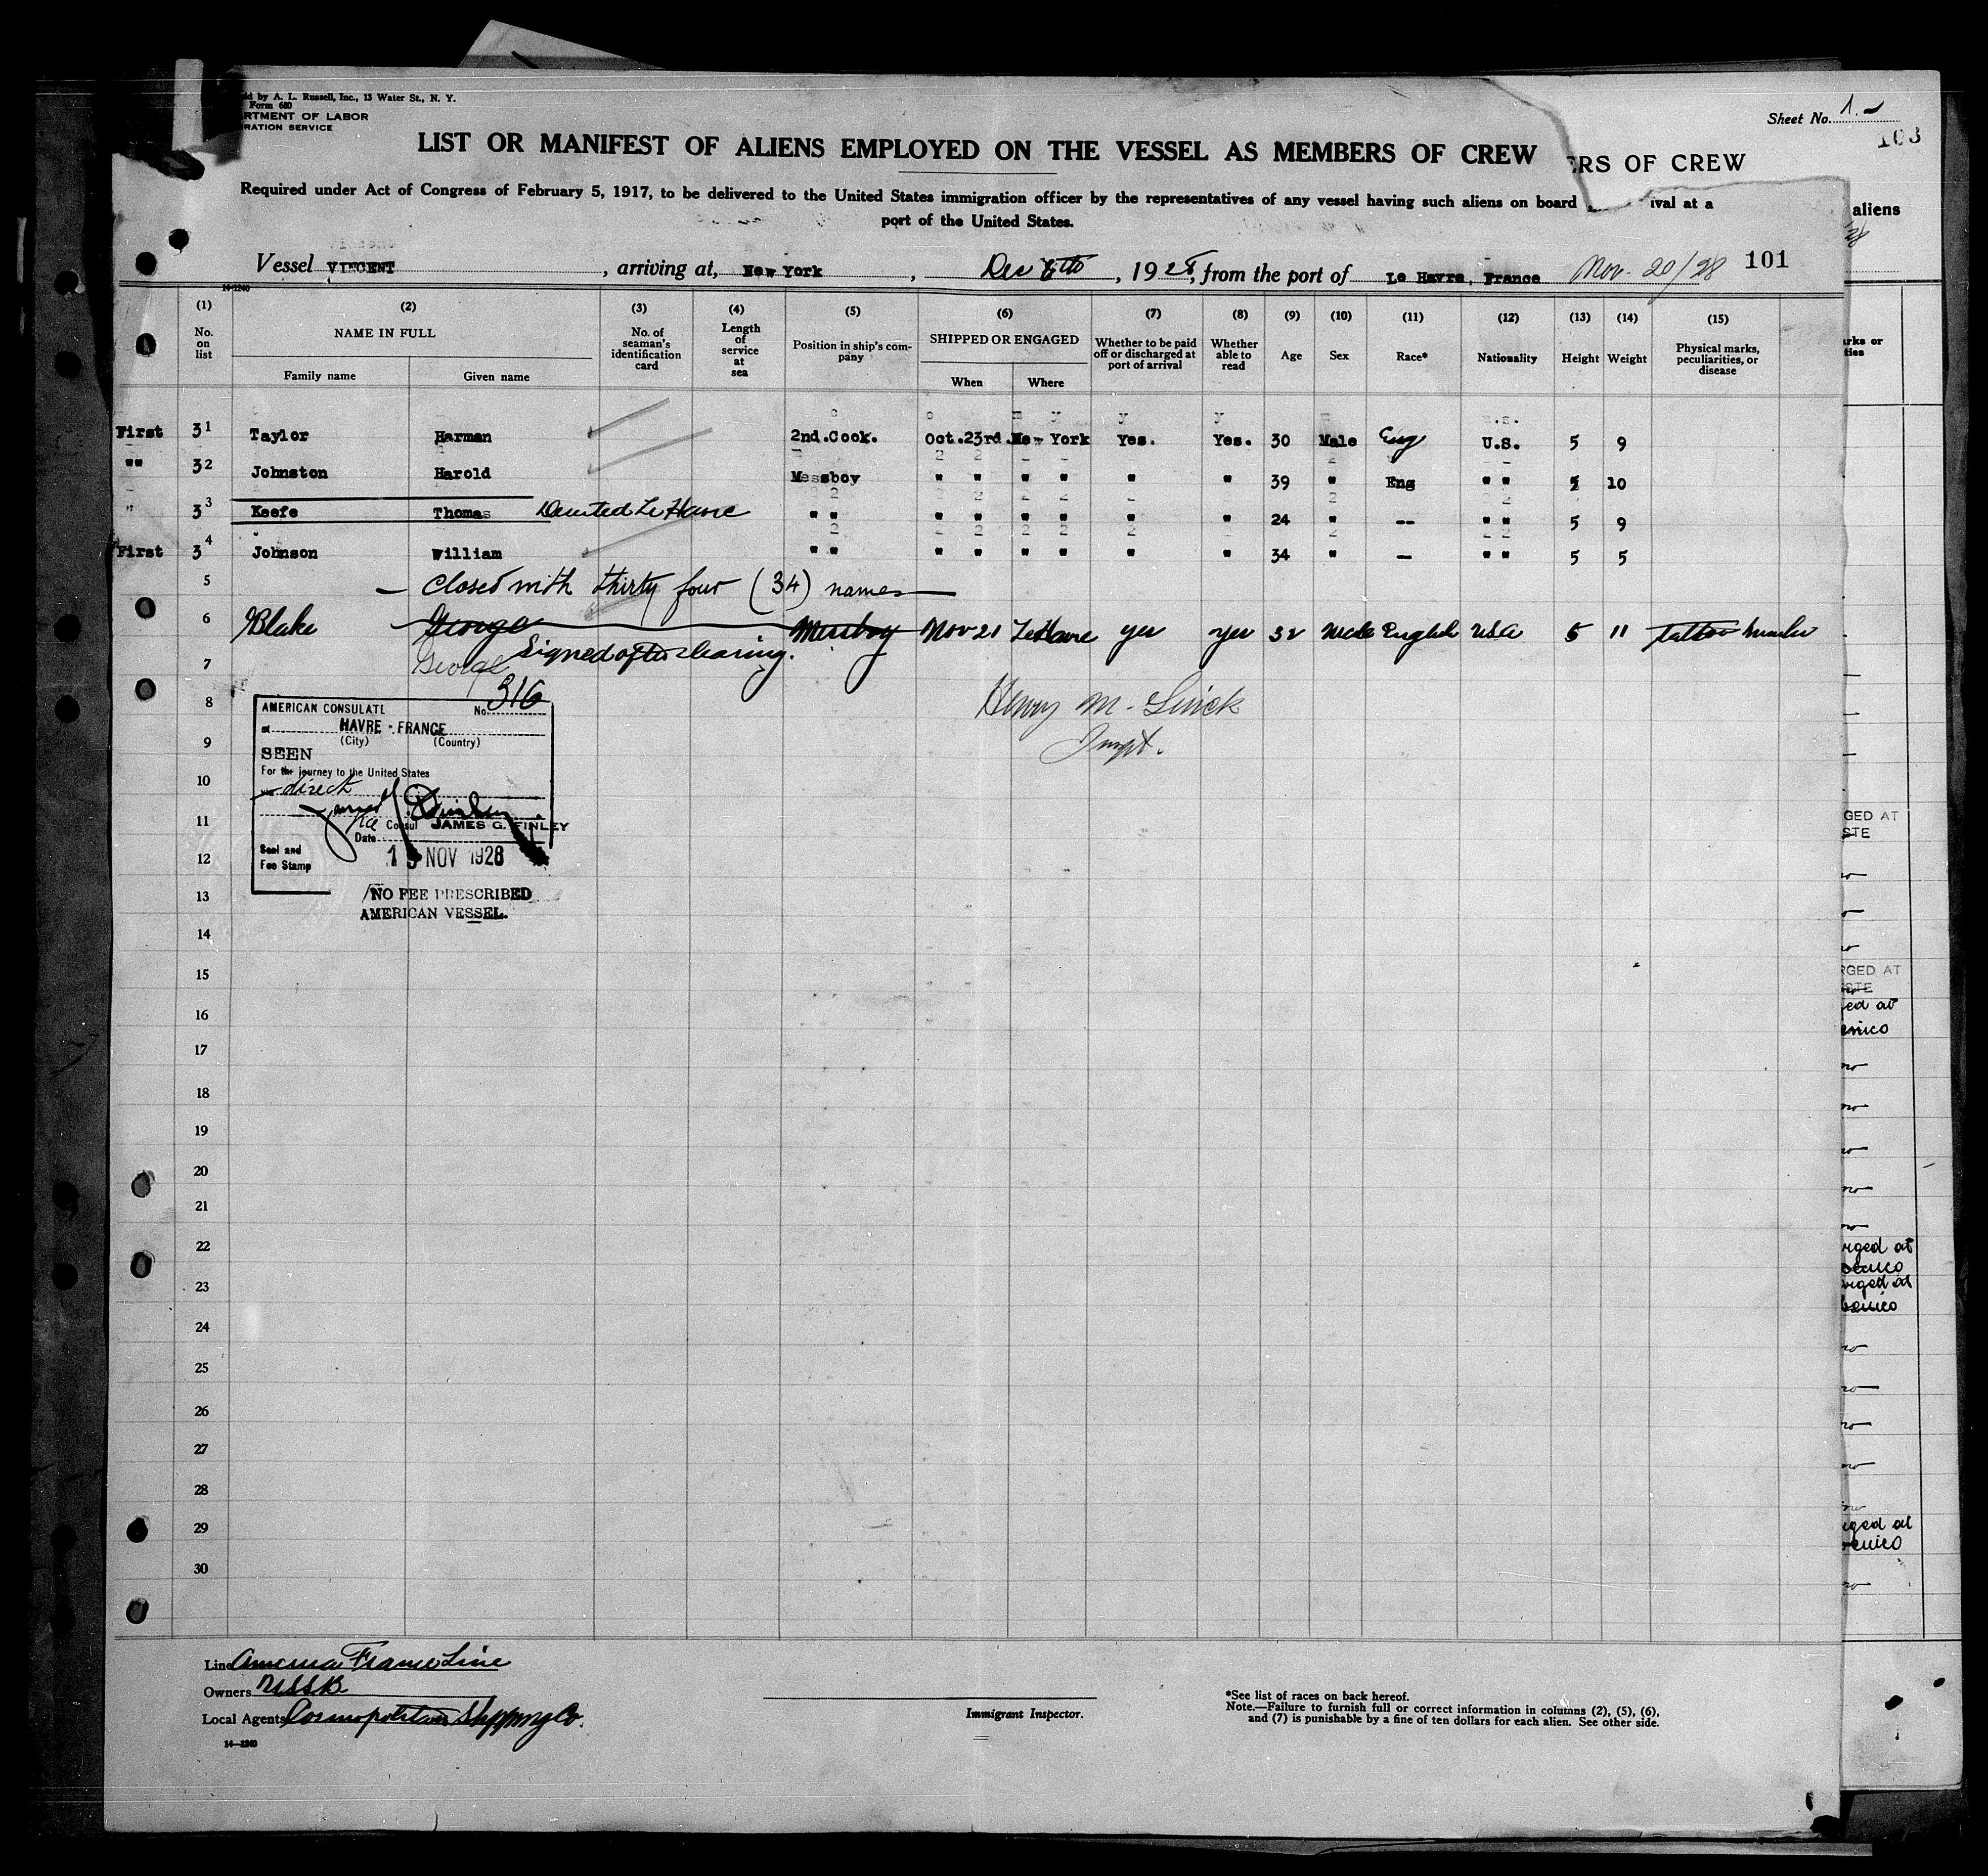 ld by A. L. Russell, Inc., 13 Water St., N. Y.
Form 680
RTMENT OF LABOR
RATION SERVICE
Sheet No. 1.
103
LIST OR MANIFEST OF ALIENS EMPLOYED ON THE VESSEL AS MEMBERS OF CREW
ERS OF CREW
Required under Act of Congress of February 5, 1917, to be delivered to the United States immigration officer by the representatives of any vessel having such aliens on board ival at a
port of the United States.
aliens
Vessel VINCENT, arriving at, New York, Dec 6th, 1928, from the port of Le Havre, France Nov. 20/28 101
14-1240
(1) No. on list
(2) NAME IN FULL
Family name Given name
(3) No. of seaman's identification card
(4) Length of service at sea
(5) Position in ship's company
(6) SHIPPED OR ENGAGED
When Where
(7) Whether to be paid off or discharged at port of arrival
(8) Whether able to read
(9) Age
(10) Sex
(11) Race*
(12) Nationality
(13) Height
(14) Weight
(15) Physical marks, peculiarities, or disease
First 31 Taylor Harman 2nd.Cook. Oct.23rd. New York Yes. Yes. 30 Male Eng U.S. 5 9
"" 32 Johnston Harold Messboy " " " " " " 39 " Eng " " 5 10
" 33 Keefe Thomas Deserted Le Havre " " " " " " " " 24 " -- " " 5 9
First 34 Johnson William " " " " " " " " 34 " — " " 5 5
5 — Closed with thirty four (34) names —
6 Blake George Messboy Nov 21 Le Havre yes yes 32 Male English USA 5 11 tattoo
7 George Signed after clearing.
8
Henry M.
9
Inspt.
AMERICAN CONSULATE No. 316
at HAVRE - FRANCE
(City) (Country)
SEEN
For the journey to the United States
via direct
Vice Consul JAMES G. FINLEY
Date
Seal and
Fee Stamp
19 NOV 1928
NO FEE PRESCRIBED
AMERICAN VESSEL.
10
11
12
13
14
15
16
17
18
19
20
21
22
23
24
25
26
27
28
29
30
Line America France Line
Owners USSB
Local Agents Cosmopolitan Shipping Co.
14—1240
Immigrant Inspector.
*See list of races on back hereof.
Note.—Failure to furnish full or correct information in columns (2), (5), (6),
and (7) is punishable by a fine of ten dollars for each alien. See other side.